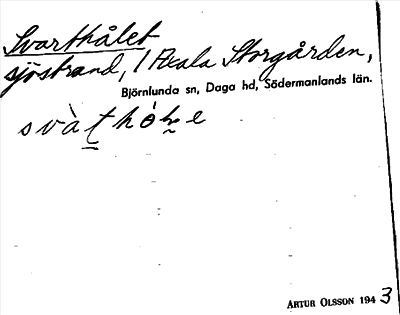 Svarthålet
sjöstrand, / Axala Storgården,
Björnlunda sn, Daga hd, Södermanlands län.
svàt hó e
ARTUR OLSSON 1943